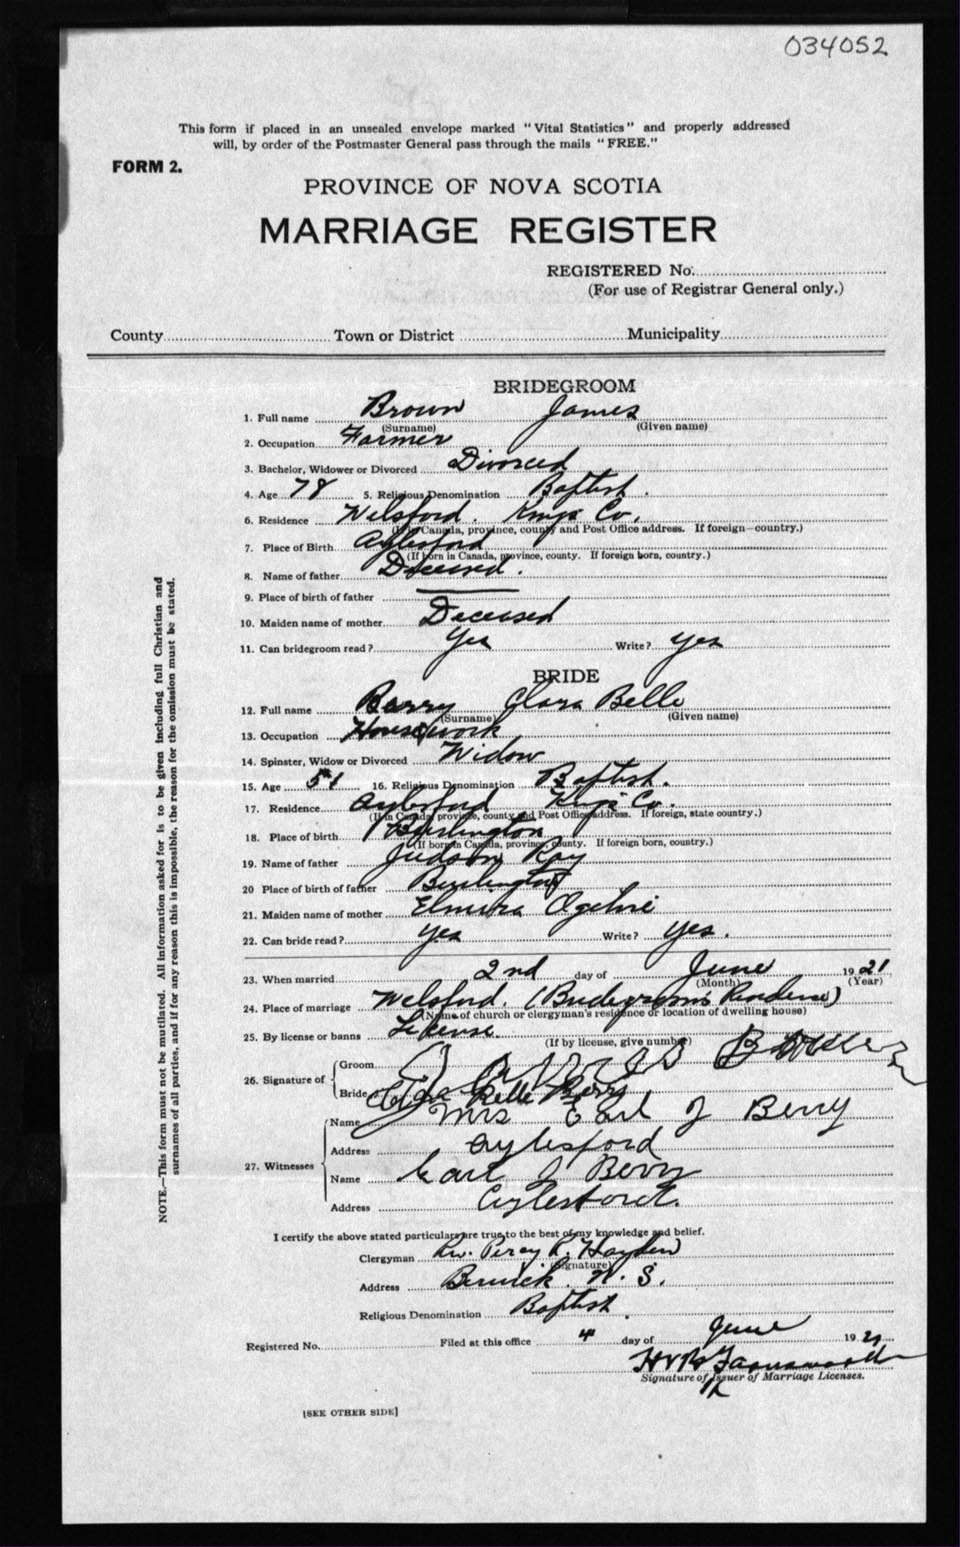 034052
This form if placed in an unsealed envelope marked "Vital Statistics" and properly addressed
will, by order of the Postmaster General pass through the mails "FREE."
FORM 2.
PROVINCE OF NOVA SCOTIA
MARRIAGE REGISTER
REGISTERED No.
(For use of Registrar General only.)
County Town or District Municipality
BRIDEGROOM
1. Full name Brown James
(Surname) (Given name)
2. Occupation Farmer
3. Bachelor, Widower or Divorced Divorced
4. Age 78 5. Religious Denomination Baptist.
6. Residence Welsford. Kings Co.
(If in Canada, province, county and Post Office address. If foreign—country.)
7. Place of Birth Aylesford
(If born in Canada, province, county. If foreign born, country.)
8. Name of father Deceased.
9. Place of birth of father
10. Maiden name of mother Deceased
11. Can bridegroom read? Yes Write? yes
BRIDE
12. Full name Barry Clara Belle
(Surname) (Given name)
13. Occupation Housework
14. Spinster, Widow or Divorced Widow
15. Age 51 16. Religious Denomination Baptist.
17. Residence Aylesford Kings Co.
(If in Canada, province, county and Post Office address. If foreign, state country.)
18. Place of birth Burlington
(If born in Canada, province, county. If foreign born, country.)
19. Name of father Judson Ray
20 Place of birth of father Burlington
21. Maiden name of mother Elmira
22. Can bride read? yes Write? yes.
23. When married 2nd day of June 1921
(Month) (Year)
24. Place of marriage Welsford. (Bridegroom's Residence)
(Name of church or clergyman's residence or location of dwelling house)
25. By license or banns License.
(If by license, give number)
26. Signature of
Groom
Bride Clara Belle Berry
27. Witnesses
Name Mrs Earl J Berry
Address Aylesford
Name Earl J Berry
Address Aylesford.
I certify the above stated particulars are true to the best of my knowledge and belief.
Clergyman Rev. Percy R. Hayden
(Signature)
Address Berwick. N. S.
Religious Denomination Baptist.
Registered No. Filed at this office 4 day of June 1921
Signature of Issuer of Marriage Licenses.
[SEE OTHER SIDE]
NOTE.—This form must not be mutilated. All information asked for is to be given including full Christian and
surnames of all parties, and if for any reason this is impossible, the reason for the omission must be stated.